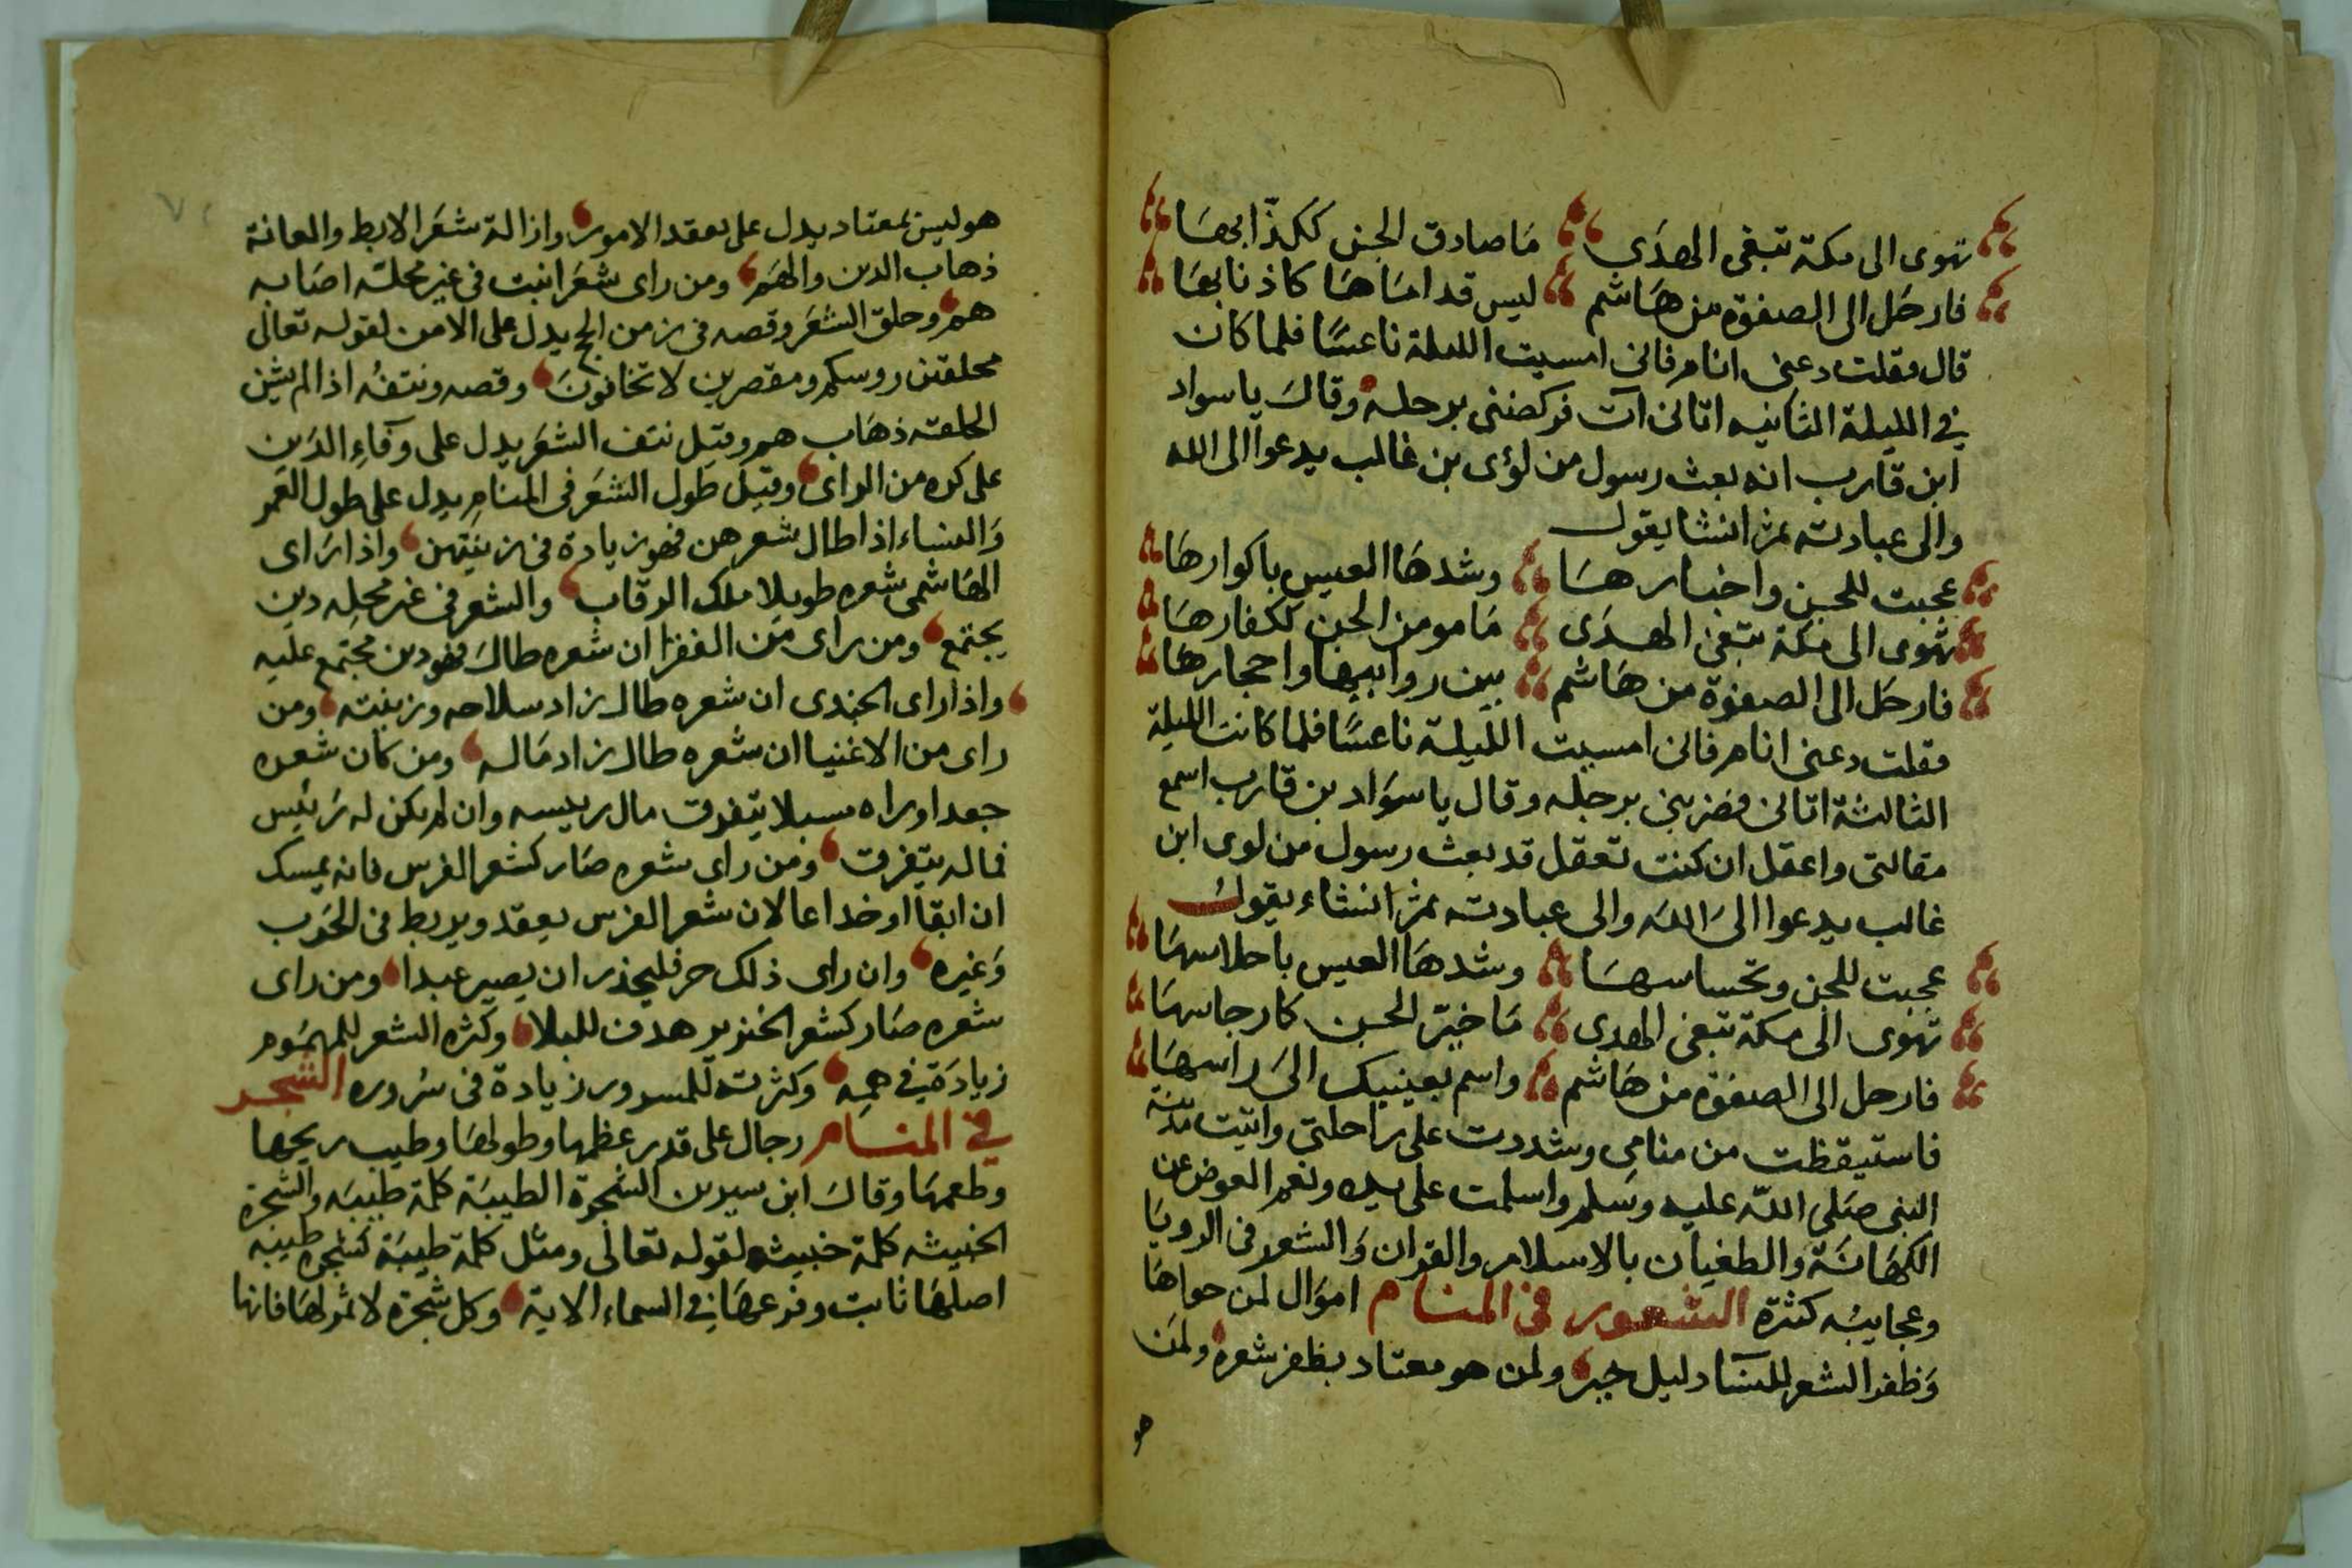 تهوى الى مكة تبغى الهدى ما صادق الجن ككذابها
فارحل الى الصفوة من هاشم ليس قداماها كاذنابها
قال فقلت دعنى انام فانى امسيت الليلة ناعسا فلما كان
في الليلة الثانيه اتانى آت فركضنى برجله وقال يا سواد
ابن قارب انه بعث رسول من لؤى بن غالب يدعوا الى الله
والى عبادته ثم انشا يقول
عجبت للجن واخبارها وشدها العيس باكوارها
تهوى الى مكة تبغى الهدى ما مومن الجن ككفارها
فارحل الى الصفوة من هاشم بين روابيها واحجارها
فقلت دعنى انام فانى امسيت الليلة ناعسا فلما كانت الليلة
الثالثة اتانى فضربنى برجله وقال يا سواد بن قارب اسمع
مقالتى واعقل ان كنت تعقل قد بعث رسول من لوى ابن
غالب يدعوا الى الله والى عبادته ثم انشاء يقول
عجبت للجن وتحساسها وشدها العيس باحلاسها
تهوى الى مكة تبغى الهدى ما خير الجن كارجاسها
فارحل الى الصفوة من هاشم واسم بعينيك الى راسها
فاستيقظت من منامى وشددت على راحلتى واتيت مدينة
النبى صلى الله عليه وسلم واسلمت على يديه ونعم العوض عن
الكهانة والطغيان بالاسلام والقران والشعر فى الرويا
وعجايبه كثرة الشعور فى المنام اموال لمن حواها
وظفر الشعر للنسا دليل خير ولمن هو معتاد بظفر شعره ولمن
هو
هو ليس بمعتاد يدل على تعقد الامور وازالة شعر الابط والعانة
ذهاب الدين والهم ومن راى شعرا نبت فى غير محلته اصابه
هم وحلق الشعر وقصه فى زمن الحج يدل على الامن لقوله تعالى
محلقين روسكم ومقصرين لا تخافون وقصه ونتفه اذا لم يشن
الخلقه ذهاب هم وقيل نتف الشعر يدل على وفاء الدين
على كره من الراى وقيل طول الشعر فى المنام يدل على طول العمر
والنساء اذا طال شعرهن فهو زيادة فى زينتهن واذا راى
الهاشمى شعره طويلا ملك الرقاب والشعر فى غير محله دين
يجتمع ومن راى من الفقرا ان شعره طال فهو دين مجتمع عليه
واذا راى الجندى ان شعره طال زاد سلاحه وزينته ومن
راى من الاغنيا ان شعره طال زاد ماله ومن كان شعره
جعدا وراه سبلا يتفرق مال رييسه وان لم يكن له رئيس
فماله يتفرق ومن راى شعره صار كشعر الفرس فانه يمسك
ان ابقا او خداعا لان شعر الفرس يعقد ويربط فى الحرب
وغيره وان راى ذلك حر فليحذر ان يصير عبدا ومن راى
شعره صار كشعر الخنزير هدف للبلا وكثره الشعر للمهموم
زيادة في همه وكثرته للمسرور زيادة فى سروره الشجر
في المنام رجال على قدر عظمها وطولها وطيب ريحها
وطعمها وقال ابن سيرين الشجرة الطيبة كلمة طيبه والشجرة
الخبيثه كلمة خبيثه لقوله تعالى ومثل كلمة طيبة كشجرة طيبه
اصلها ثابت وفرعها في السماء الاية وكل شجرة لا ثمر لها فانها